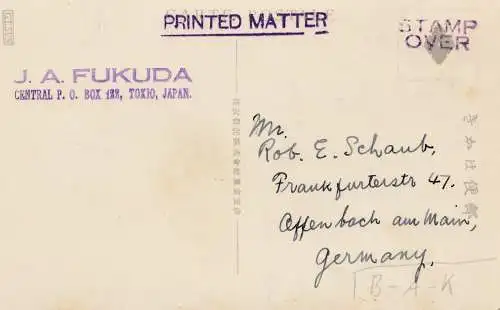 CARTE POSTALE
PRINTED MATTER
STAMP
OVER
J. A. FUKUDA
CENTRAL P. O. BOX 122, TOKIO, JAPAN.
Mr.
Rob. E. Schaub,
Frankfurterstr 47.
Offenbach am Main,
Germany.
B-A-K
きかは便郵